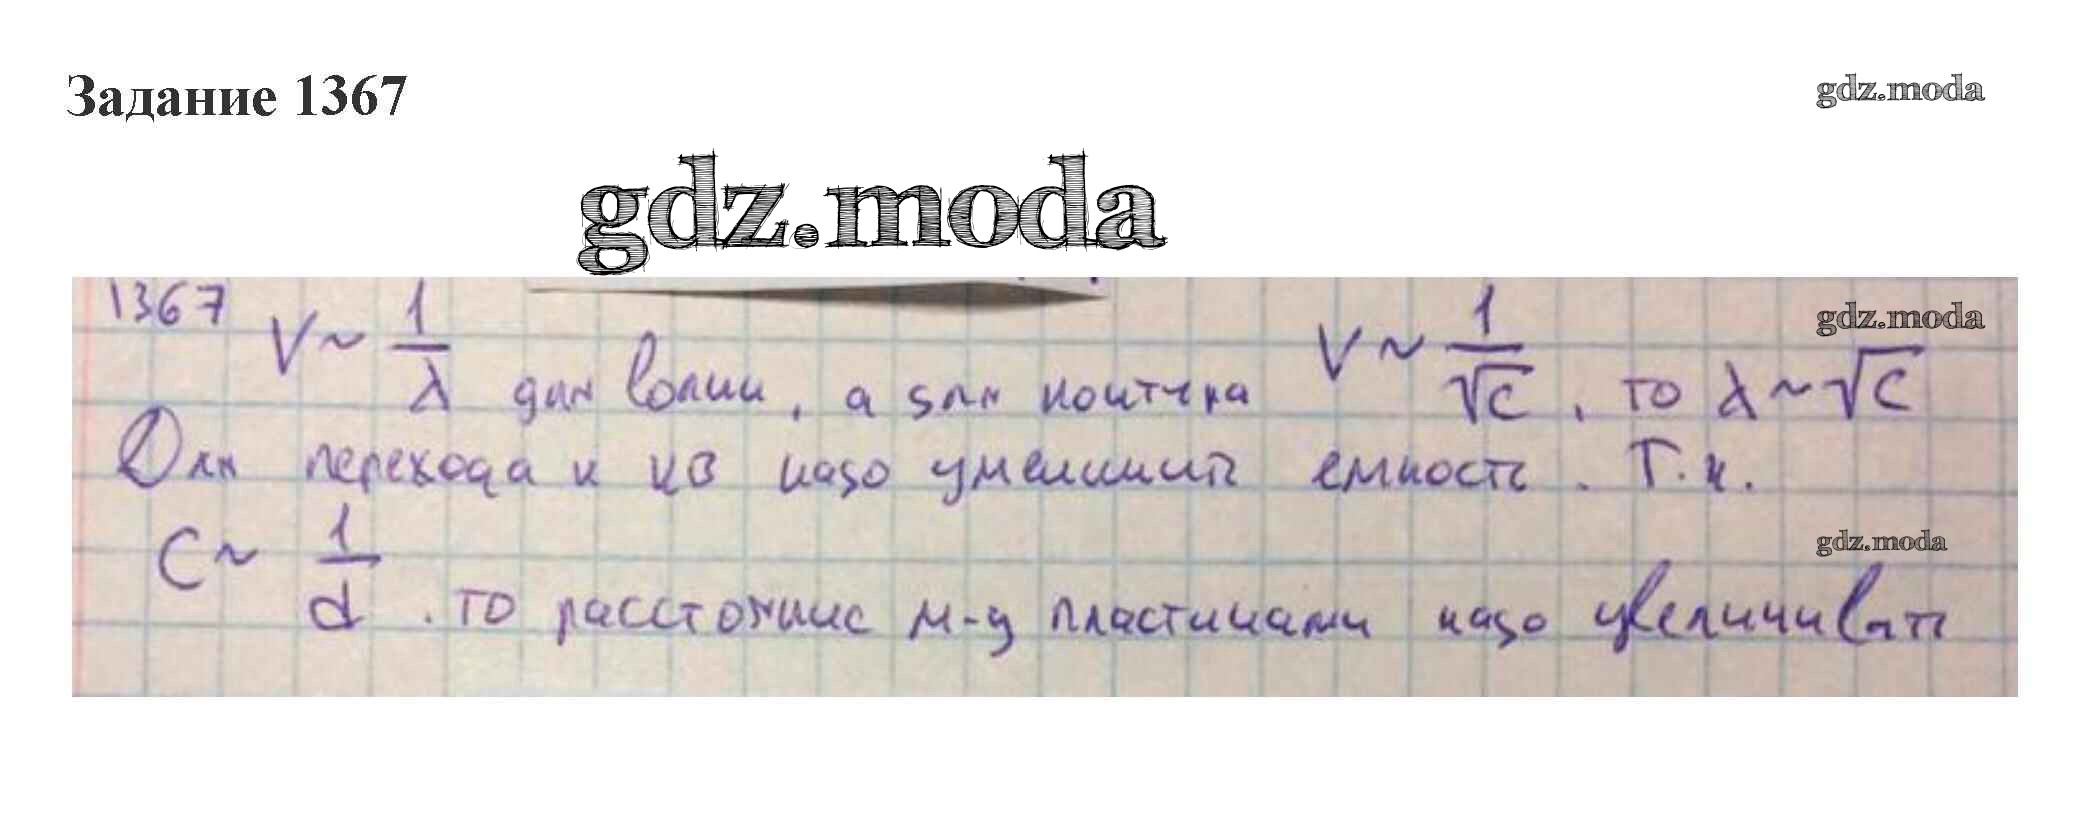 Задание 1367
gdz.moda
gdz.moda
1367 V ~ 1/λ для волны, а для контура V ~ 1/√C, то λ ~ √C
gdz.moda
Для перехода к КВ надо уменьшить емкость. Т.к.
gdz.moda
C ~ 1/d, то расстояние м-у пластинами надо увеличивать